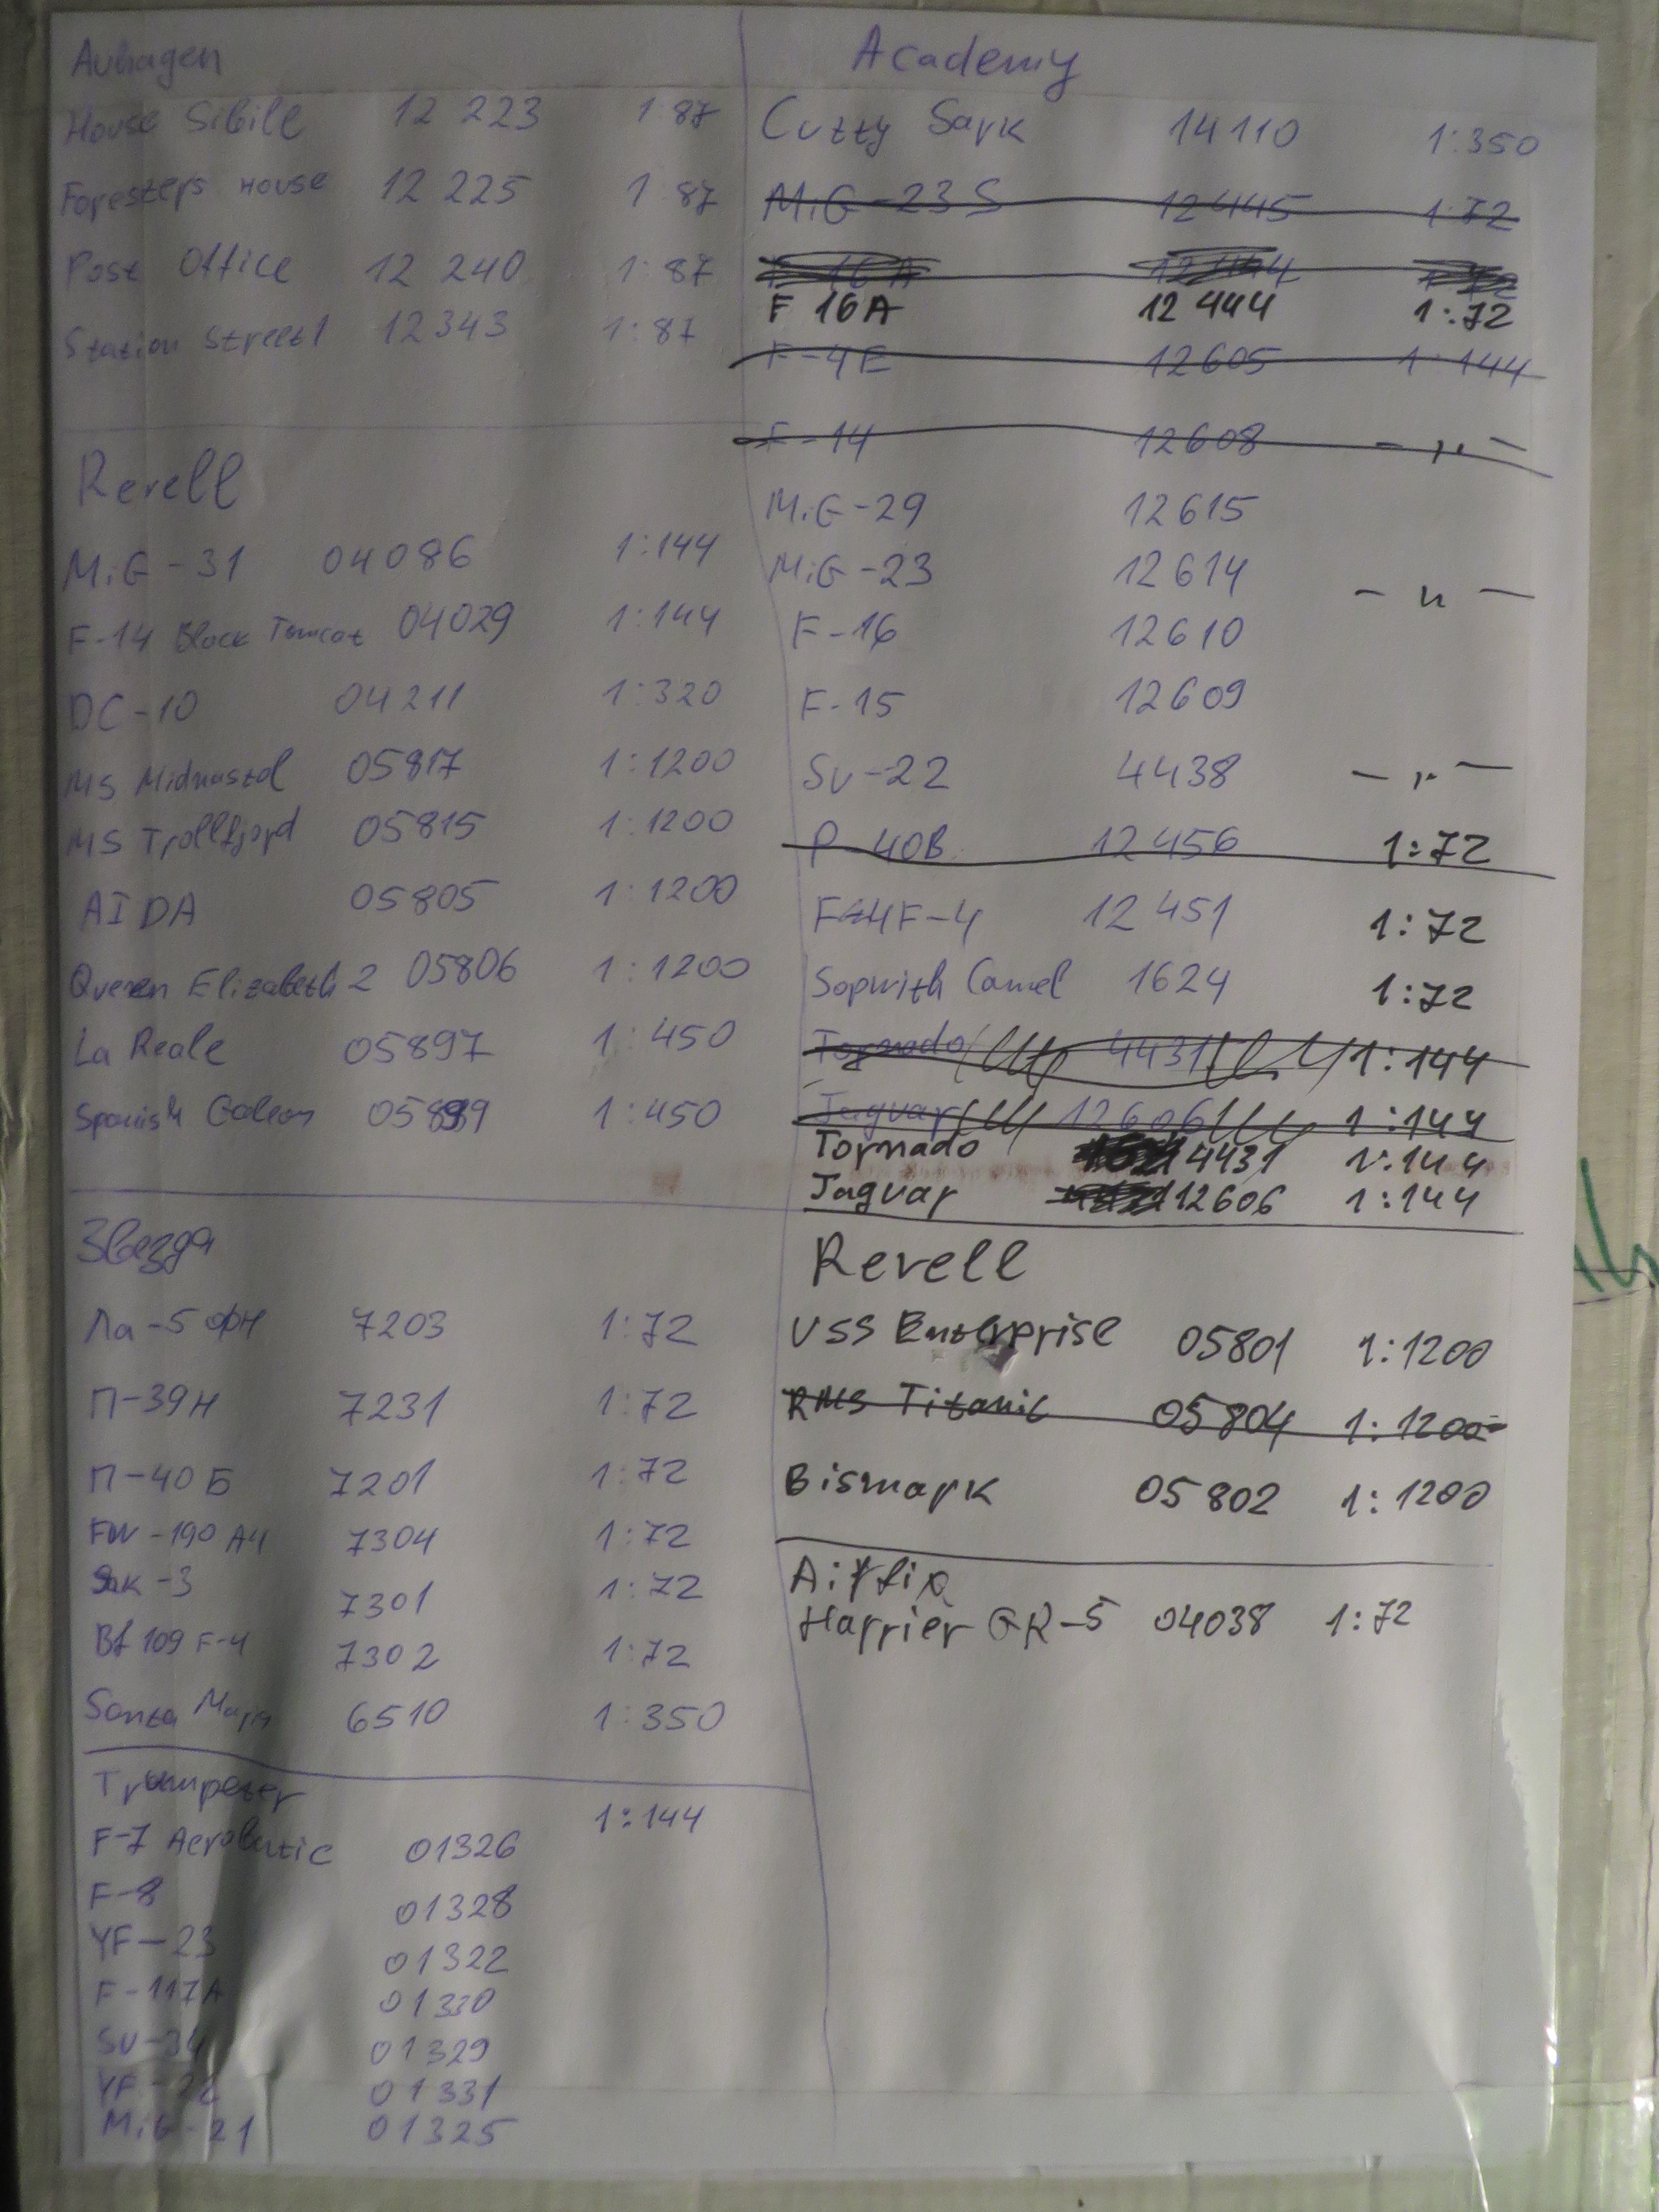 Auhagen
House Sibille 12 223 1:87
Foresters House 12 225 1:87
Post Office 12 240 1:87
Station Street 1 12 343 1:87
Revell
MiG-31 04086 1:144
F-14 Black Tomcat 04029 1:144
DC-10 04211 1:320
MS Midnastol 05817 1:1200
MS Trollfjord 05815 1:1200
AIDA 05805 1:1200
Queen Elizabeth 2 05806 1:1200
La Reale 05897 1:450
Spanish Galeon 05899 1:450
Звезда
Ла-5 ФН 7203 1:72
П-39Н 7231 1:72
П-40Б 7201 1:72
FW-190 A4 7304 1:72
Як-3 7301 1:72
Bf 109 F-4 7302 1:72
Santa Maria 6510 1:350
Trumpeter
1:144
F-7 Aerobatic 01326
F-8 01328
YF-23 01322
F-117A 01330
SU-34 01329
YF-22 01331
MiG-21 01325
Academy
Cutty Sark 14110 1:350
MiG-23S 12445 1:72
F 16A 12444 1:72
F 16A 12 444 1:72
F-4E 12605 1:144
F-14 12608 -„-
MiG-29 12615
MiG-23 12614 -„-
F-16 12610
F-15 12609
SU-22 4438 -„-
P-40B 12456 1:72
F4F-4 12451 1:72
Sopwith Camel 1624 1:72
Tornado 4431 1:144
Jaguar 12606 1:144
Tornado 4431 1:144
Jaguar 12606 1:144
Revell
USS Enterprise 05801 1:1200
RMS Titanic 05804 1:1200
Bismark 05802 1:1200
Airfix
Harrier GR-5 04038 1:72